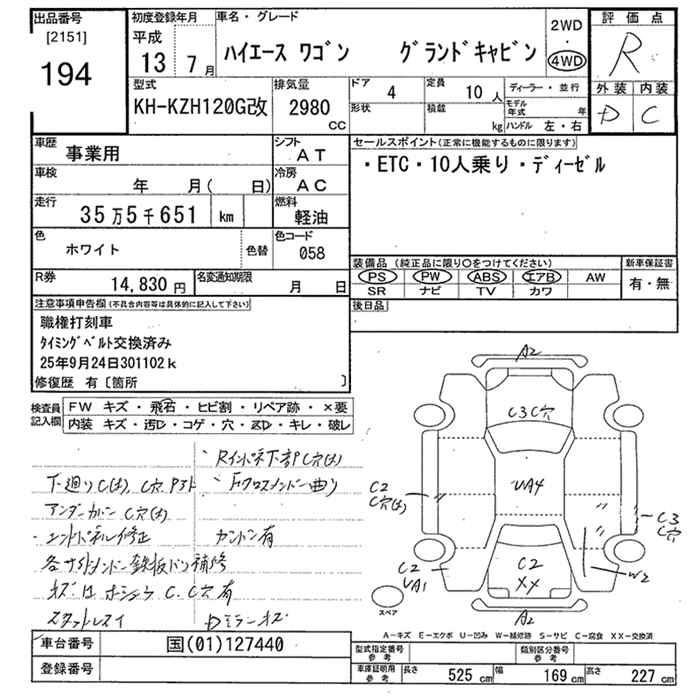 出品番号 初度登録年月 車名・グレード 2WD 評価点
[2151] 平成
194 13年7月 ハイエース ワゴン グランドキャビン 4WD R
型式 排気量 ドア 4 定員 10人 ディーラー・並行 外装 内装
KH-KZH120G改 2980 CC 形状 積載 kg モデル年式 年 D C
ハンドル 左・右
車歴 事業用 シフト AT セールスポイント(正常に機能するものに限ります)
車検 年 月( 日) 冷房 AC ・ETC・10人乗り・ディーゼル
走行 35万5千651 km 燃料 軽油
色 ホワイト 色替 色コード 058
装備品 (純正品に限り○をつけてください) 新車保証書
R券 14,830円 名変通知期限 月 日 PS PW ABS エアB AW 有・無
SR ナビ TV カワ
注意事項申告欄(不具合内容等は具体的に記入して下さい) 後日品
職権打刻車
タイミングベルト交換済み
25年9月24日301102k
修復歴 有〔箇所 〕
検査員記入欄 FW キズ・飛石・ヒビ割・リペア跡・×要
内装 キズ・汚D・コゲ・穴・ズD・キレ・破レ
A2
C3C穴
Rインパネ下部C穴(大)
下廻りC(大), C穴
アンダーカバーC穴(大) Fクロスメンバー曲り
エンドパネル修正 カンバン有
各サイドメンバー鉄板パン補修
キズ C.C穴有
スタッドレスタイ Dミラーキズ
UA4
C2
C穴(大)
C3
C穴
C2
UA1
C2
XX
W2
A2
スペア
A-キズ E-エクボ U-凹み W-補修跡 S-サビ C-腐食 XX-交換済
車台番号 国(01)127440 型式指定番号 参考 類別区分番号 参考
登録番号 車庫証明用 参考 長さ 525 cm 幅 169 cm 高さ 227 cm